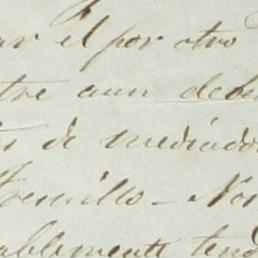 ar el por otro
tre aun debe
s de mediado
Tresillo – No
ablemente tend